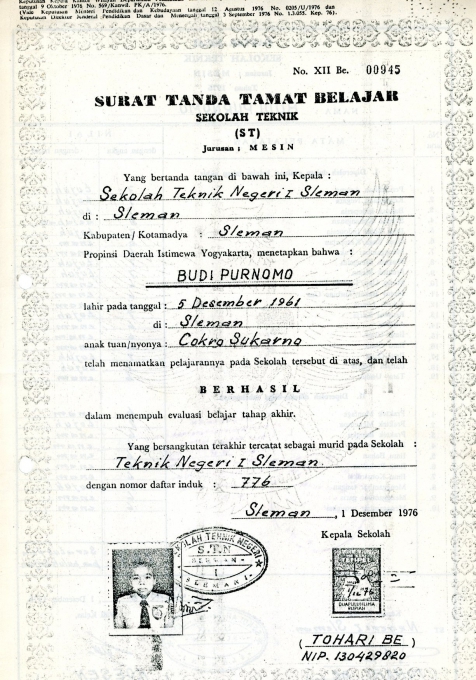 tanggal 9 Oktober 1976 No. 569/Kanwil. PK/A/1976.
(Vide Keputusan Menteri Pendidikan dan Kebudayaan tanggal 12 Agustus 1976 No. 0205/U/1976 dan
Keputusan Direktur Jenderal Pendidikan Dasar dan Menengah tanggal 3 September 1976 No. 13.055. Kep. 76).
No. XII Be. 00945
SURAT TANDA TAMAT BELAJAR
SEKOLAH TEKNIK
(ST)
Jurusan : MESIN
Yang bertanda tangan di bawah ini, Kepala :
Sekolah Teknik Negeri I Sleman
di : Sleman
Kabupaten/ Kotamadya : Sleman
Propinsi Daerah Istimewa Yogyakarta, menetapkan bahwa :
BUDI PURNOMO
lahir pada tanggal : 5 Desember 1961
di : Sleman
anak tuan/nyonya : Cokro Sukarno
telah menamatkan pelajarannya pada Sekolah tersebut di atas, dan telah
BERHASIL
dalam menempuh evaluasi belajar tahap akhir.
Yang bersangkutan terakhir tercatat sebagai murid pada Sekolah :
Teknik Negeri I Sleman
dengan nomor daftar induk : 776
Sleman, 1 Desember 1976
Kepala Sekolah
SEKOLAH TEKNIK NEGERI
S.T.N
I
SLEMAN I
DUAPULUHLIMA
RUPIAH
( TOHARI BE )
NIP. 130429820